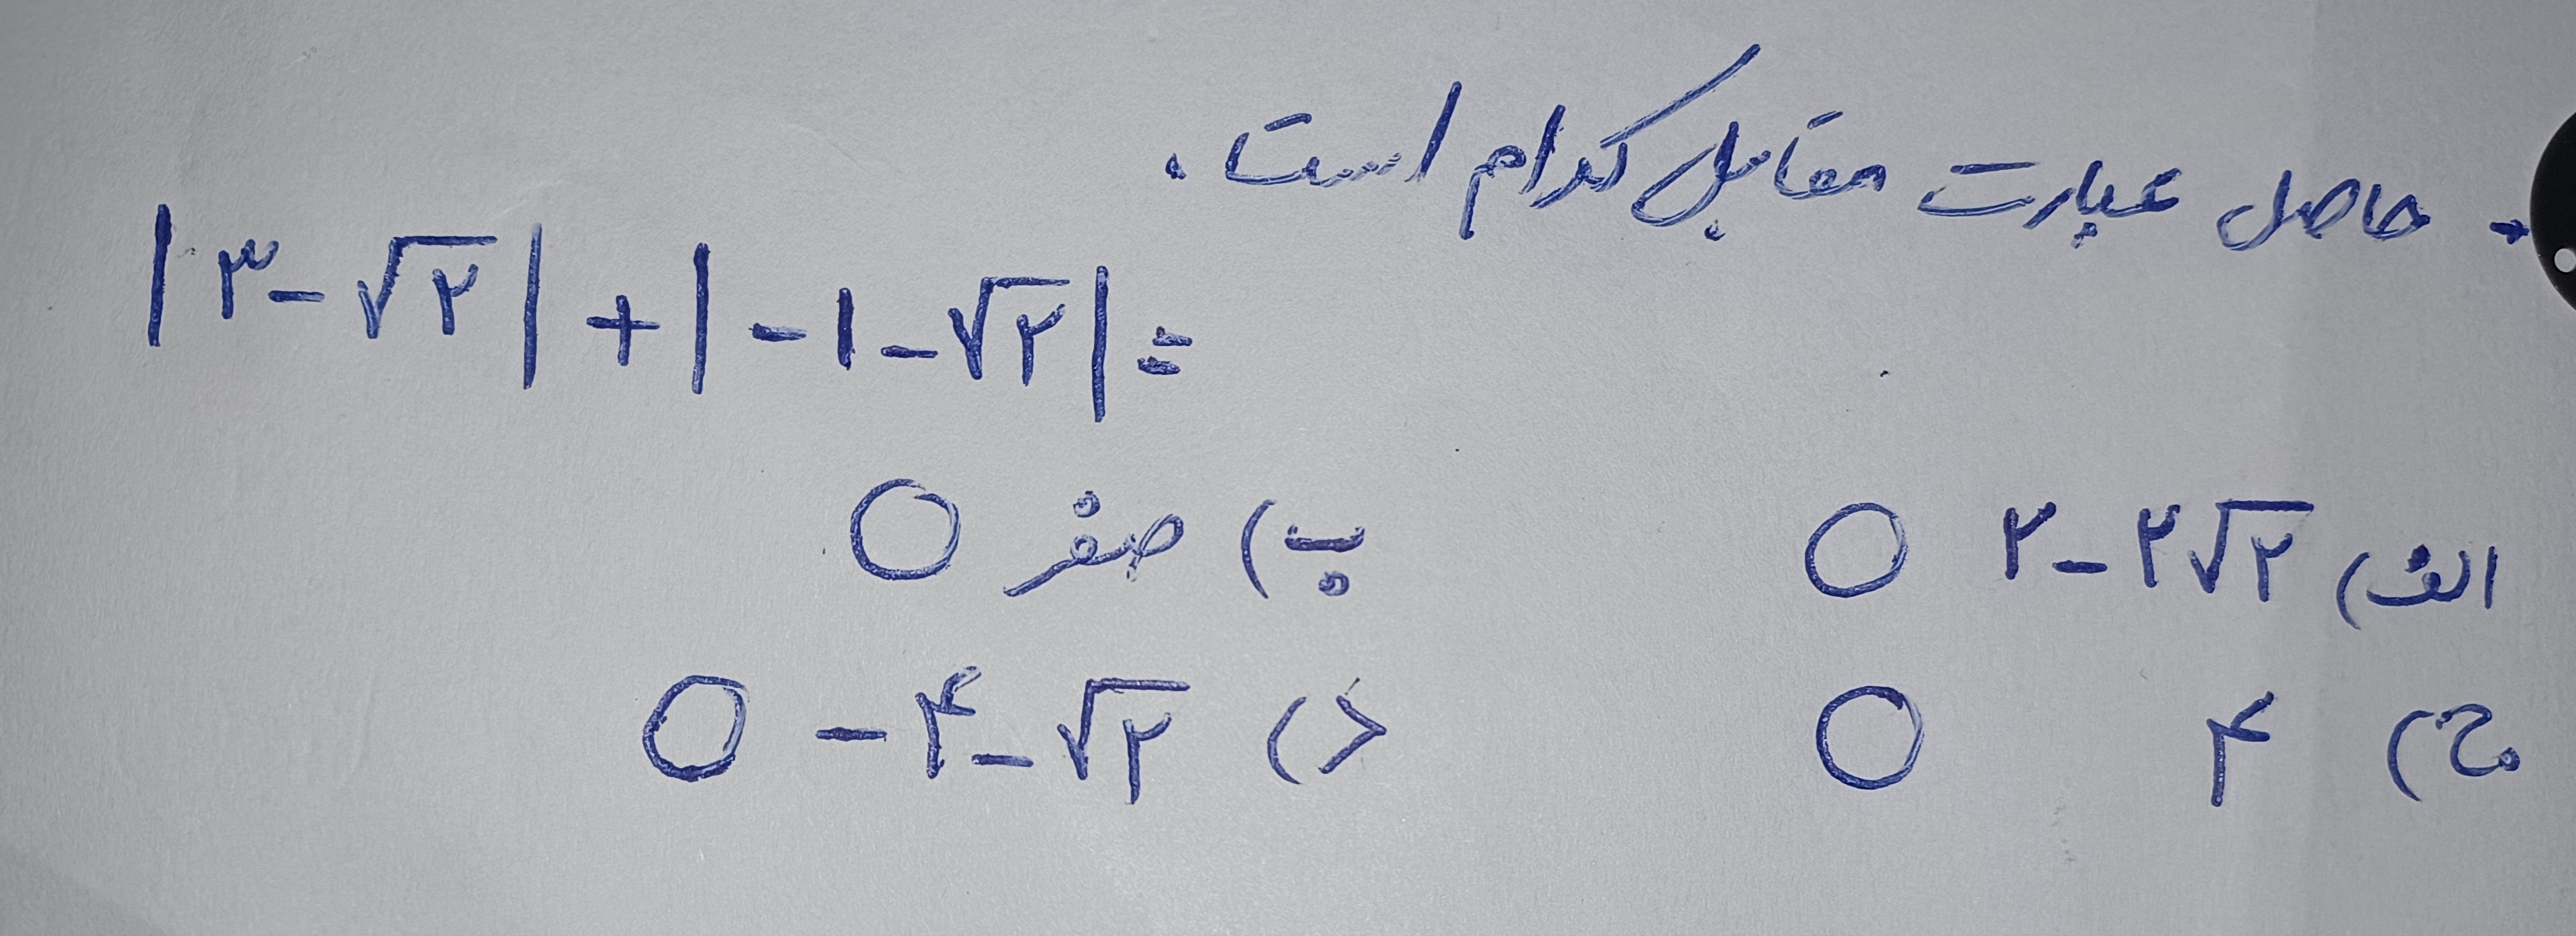 . حاصل عبارت مقابل کدام است.
|۳-√۲|+|-۱-√۲|=
الف) ۲-۲√۲ ○ ب) صفر ○
ج) ۴ ○ د) -۴-√۲ ○